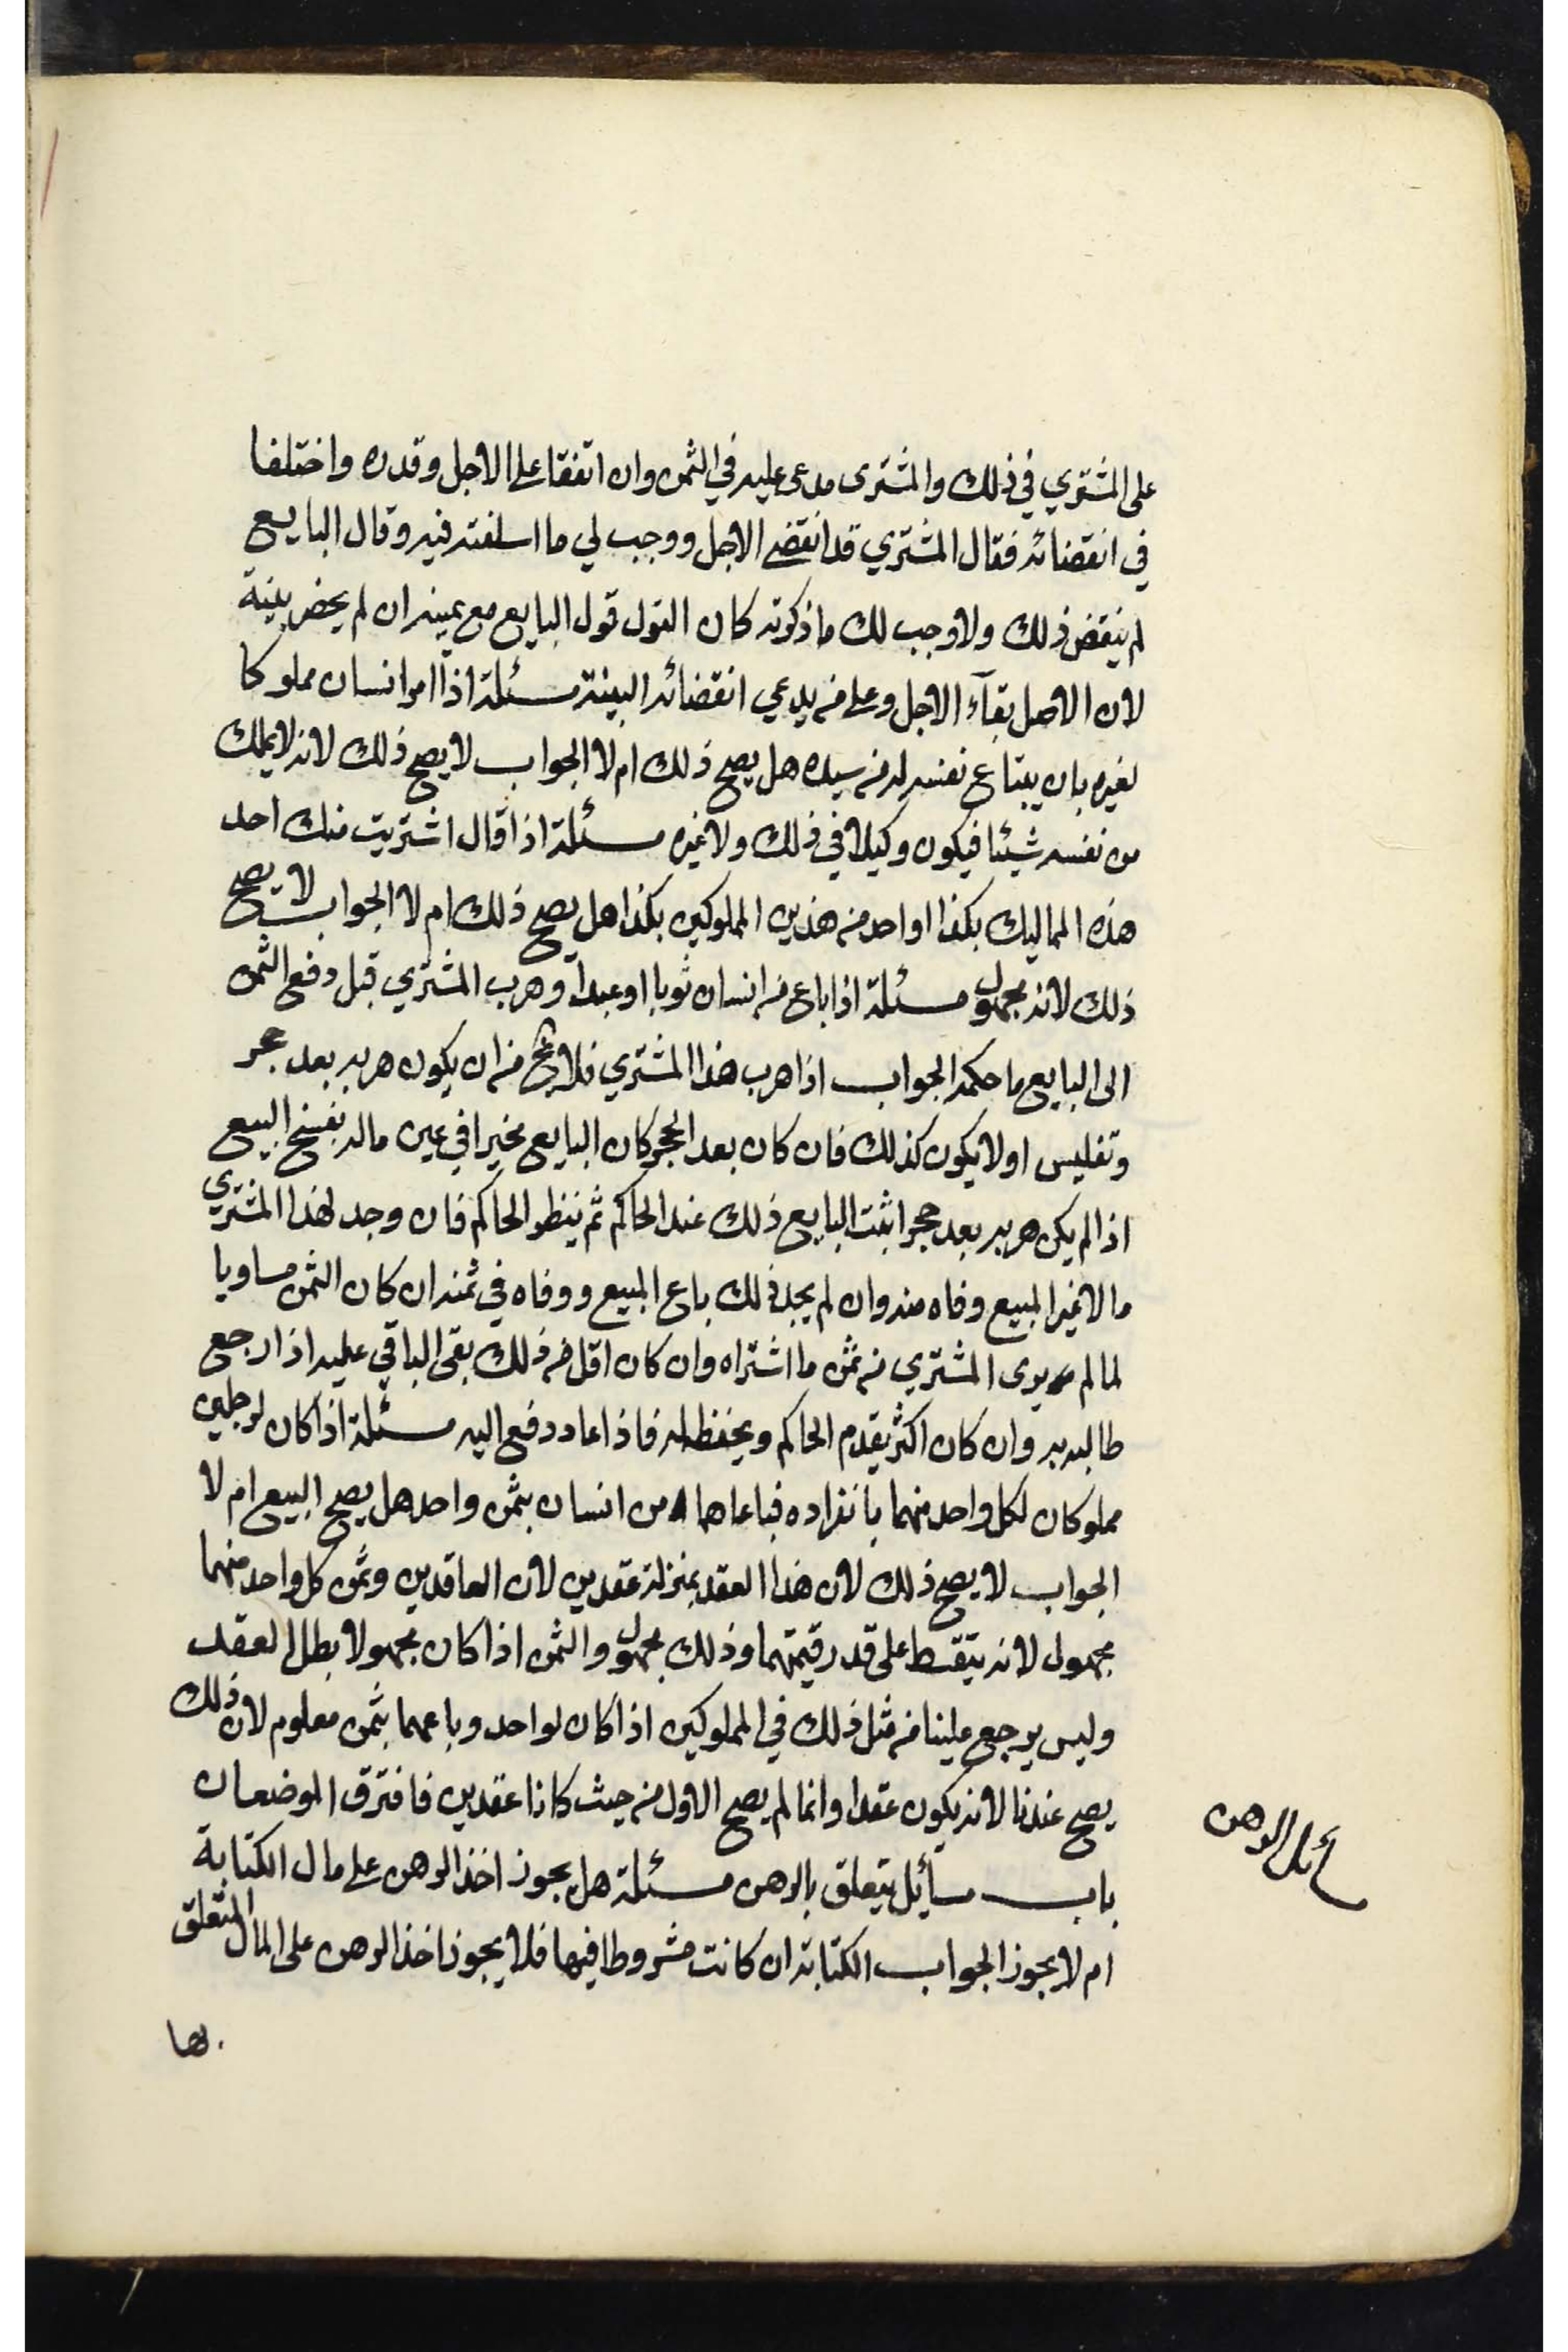 على المشتري في ذلك والمشترى مدعى عليه في الثمن وان اتفقا على الاجل وقدره واختلفا
في انقضائه فقال المشتري قد انقضى الاجل ووجب لي ما اسلفته فيه وقال البايع
لم ينقض ذلك ولا وجب لك ما ذكرته كان القول قول البايع مع يمينه ان لم يحضر بينة
لان الاصل بقآء الاجل وعلى من يدعي انقضائه البينة مسئلة اذا امر انسان مملوكا
لغيره بان يبتاع نفسه له من سيده هل يصح ذلك ام لا الجواب لا يصح ذلك لانه لا يملك
من نفسه شيئا فيكون وكيلا في ذلك ولا غيره مسئلة اذا قال اشتريت منك احد
هذه المماليك بكذا او احد من هذين المملوكين بكذا هل يصح ذلك ام لا الجواب لا يصح
ذلك لانه مجهول مسئلة اذا باع من انسان ثوبا او عبدا وهرب المشتري قبل دفع الثمن
الى البايع ما حكمه الجواب اذا هرب هذا المشتري فلا يخ من ان يكون هربه بعد حجر
وتفليس او لا يكون كذلك فان كان بعد الحجر كان البايع مخيرا في عين ماله بفسخ البيع
اذا لم يكن هربه بعد حجر اثبت البايع ذلك عند الحاكم ثم ينظر الحاكم فان وجد لهذا المشتري
مالا غير المبيع وفاه منه وان لم يجد ذلك باع المبيع ووفاه في ثمنه ان كان الثمن مساويا
لما لم يرى المشتري من ثمن ما اشتراه وان كان اقل من ذلك بقى الباقي عليه اذا رجع
طالبه به وان كان اكثر يقدم الحاكم ويحفظ له فاذا عاد دفع اليه مسئلة اذا كان لرجلين
مملوكان لكل واحد منهما بانفراده فباعاهما من انسان بثمن واحد هل يصح البيع ام لا
الجواب لا يصح ذلك لان هذا العقد بمنزلة عقدين لان العاقدين وثمن كل واحد منهما
مجهول لانه يتقسط على قدر قيمتهما وذلك مجهول والثمن اذا كان مجهولا بطل العقد
وليس يرجع علينا من مثل ذلك في المملوكين اذا كان لواحد وباعهما بثمن معلوم لان ذلك
يصح عندنا لانه يكون عقدا وانما لم يصح الاول من حيث كانا عقدين فافترق الموضعان
باب مسآئل يتعلق بالرهن مسئلة هل يجوز اخذ الرهن على مال الكتابة
ام لا يجوز الجواب الكتابة ان كانت مشروطا فيها فلا يجوز اخذ الرهن على المال المتعلق
بها
مسائل الرهن